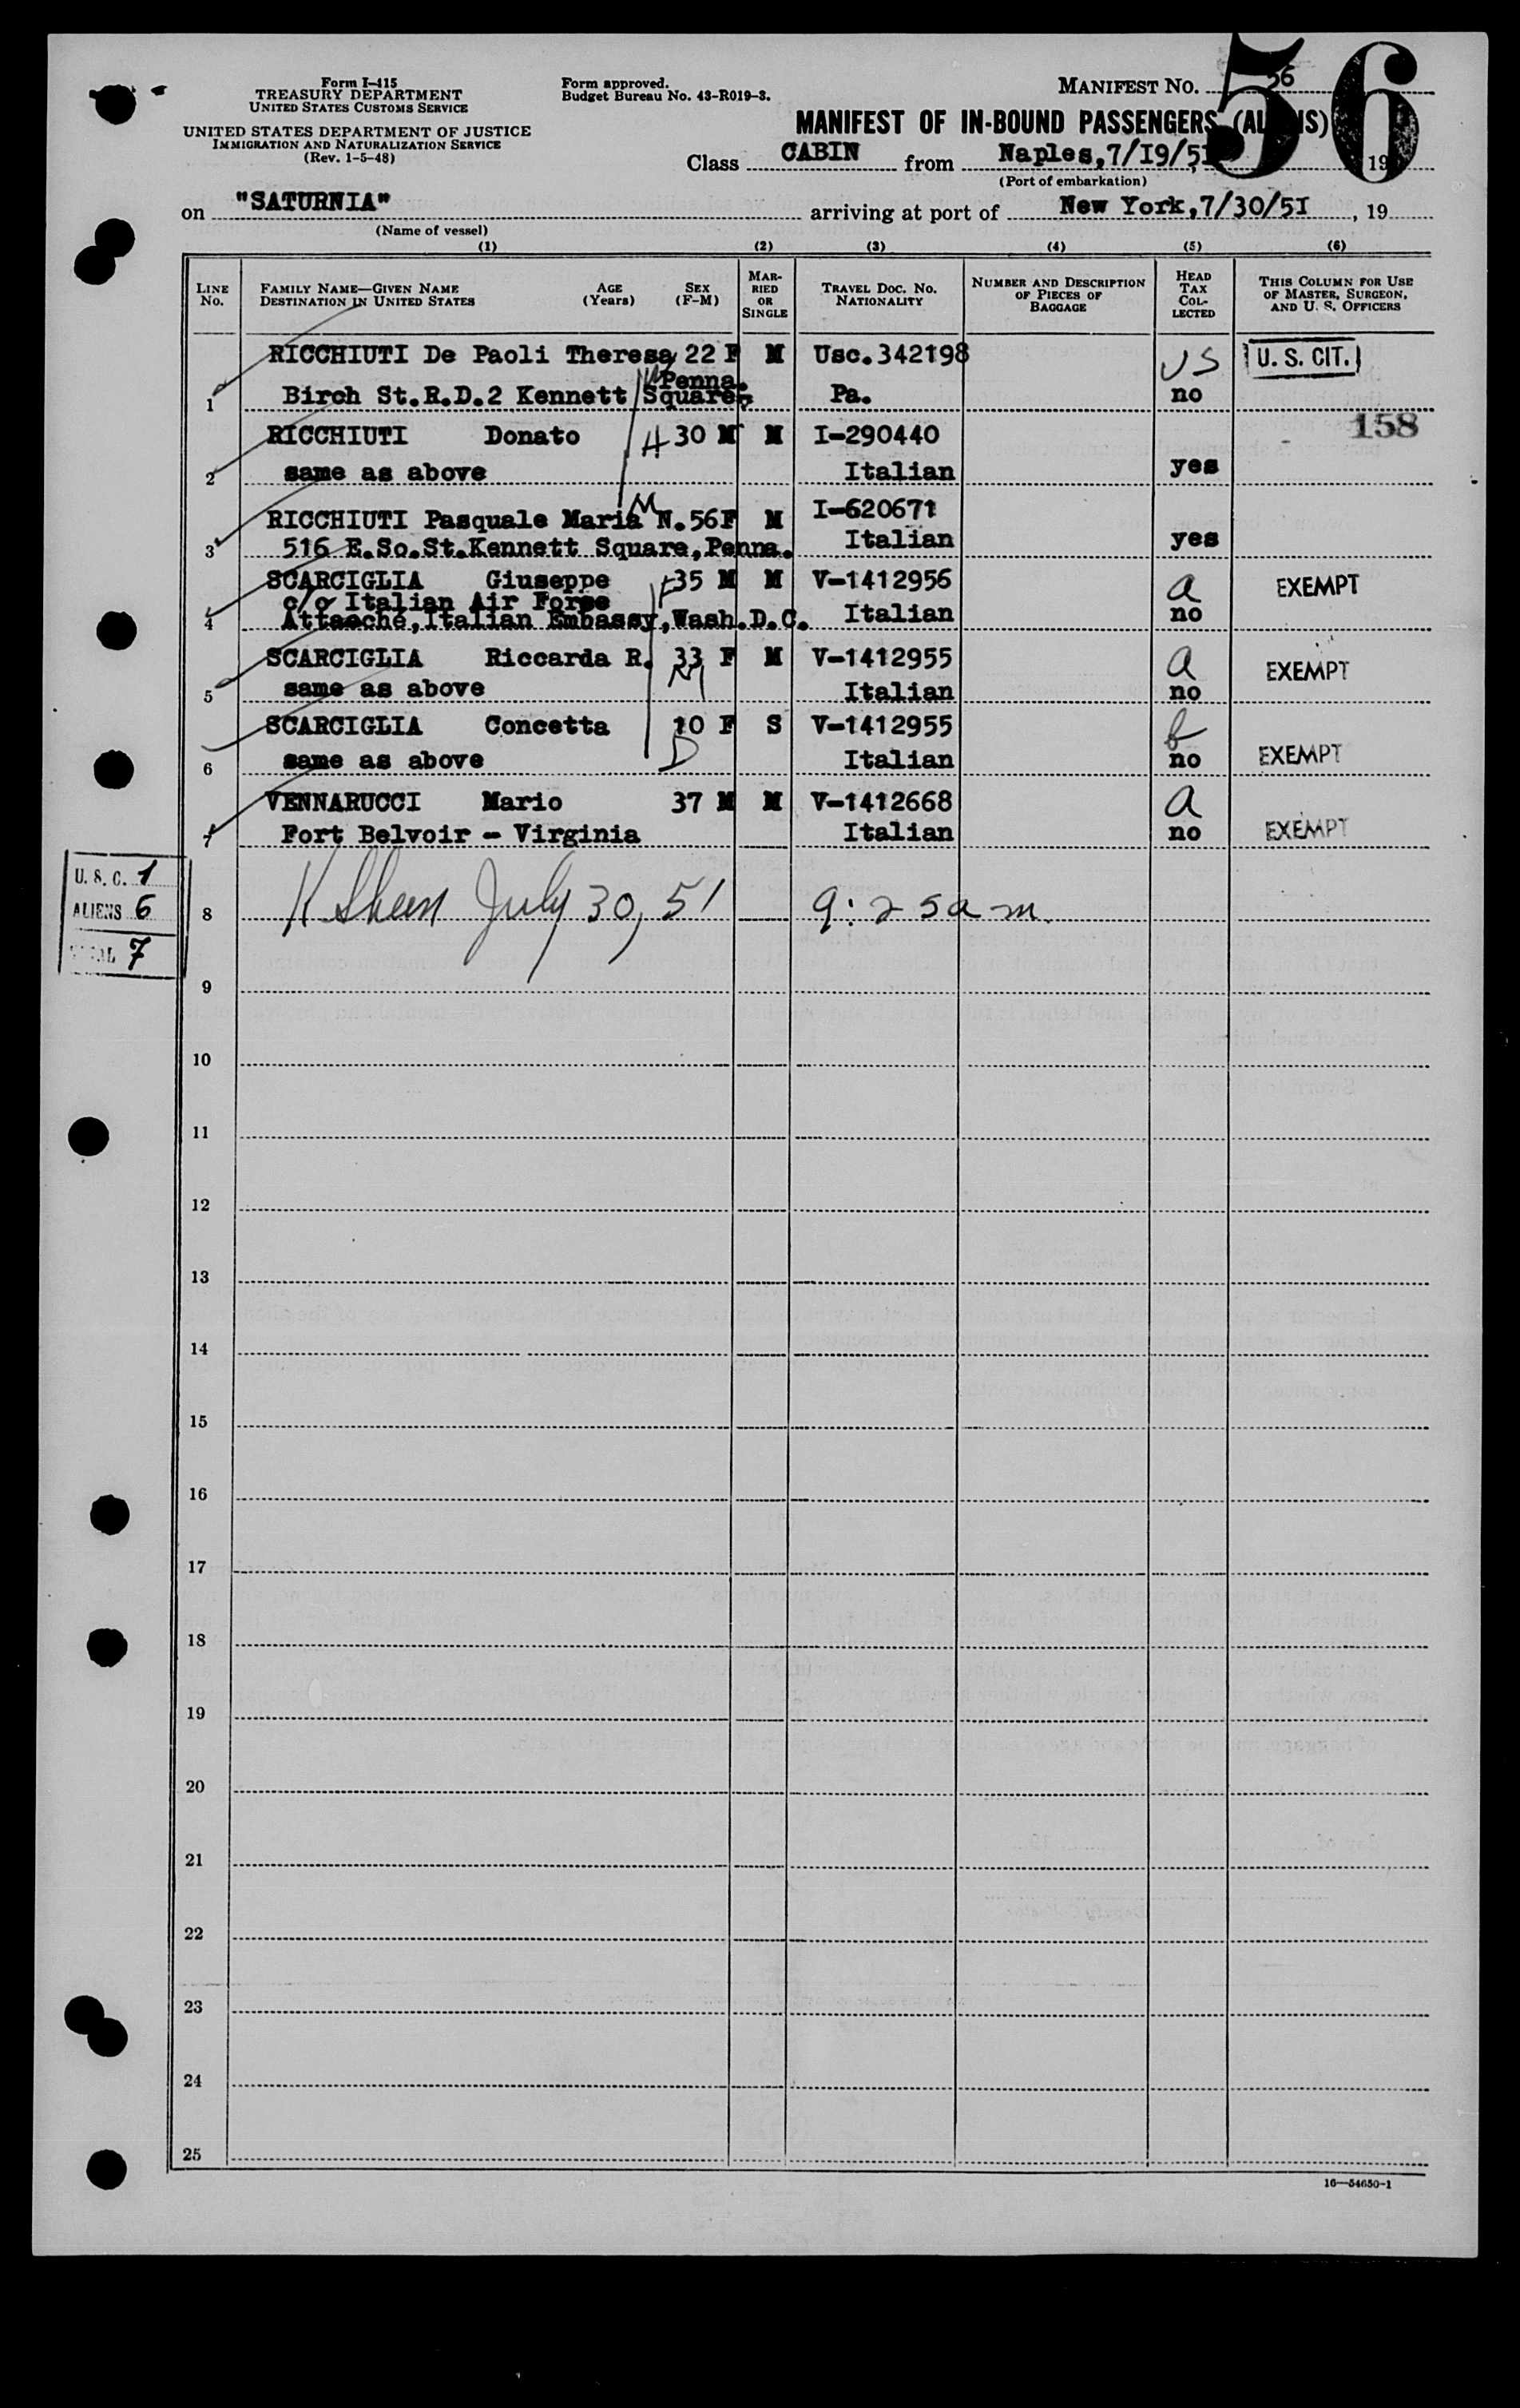 Form I-415
TREASURY DEPARTMENT
UNITED STATES CUSTOMS SERVICE
UNITED STATES DEPARTMENT OF JUSTICE
IMMIGRATION AND NATURALIZATION SERVICE
(Rev. 1-5-48)
Form approved.
Budget Bureau No. 43-R019-3.
MANIFEST NO. 56
56
MANIFEST OF IN-BOUND PASSENGERS (ALIENS)
Class CABIN from Naples,7/I9/5I, 19
(Port of embarkation)
on "SATURNIA" arriving at port of New York,7/30/5I, 19
(Name of vessel)
(1) (2) (3) (4) (5) (6)
LINE No. FAMILY NAME—GIVEN NAME DESTINATION IN UNITED STATES AGE (Years) SEX (F-M) MARRIED OR SINGLE TRAVEL DOC. NO. NATIONALITY NUMBER AND DESCRIPTION OF PIECES OF BAGGAGE HEAD TAX COLLECTED THIS COLUMN FOR USE OF MASTER, SURGEON, AND U. S. OFFICERS
RICCHIUTI De Paoli Theresa 22 F M Usc.342198 US U. S. CIT.
W Penna.
1 Birch St.R.D.2 Kennett Square, Pa. no
158
RICCHIUTI Donato H 30 M M I-290440
2 same as above Italian yes
RICCHIUTI Pasquale Maria M N.56F M I-620671
3 516 E.So.St.Kennett Square,Penna. Italian yes
SCARCIGLIA Giuseppe F 35 M M V-1412956 a EXEMPT
c/o Italian Air Force
4 Attaoché,Italian Embassy,Wash.D.C. Italian no
SCARCIGLIA Riccarda R. 33 F M V-1412955 a EXEMPT
M
5 same as above Italian no
SCARCIGLIA Concetta 10 F S V-1412955 b
D
6 same as above Italian no EXEMPT
VENNARUCCI Mario 37 M M V-1412668 a
7 Fort Belvoir - Virginia Italian no EXEMPT
U. S. C. 1
ALIENS 6
TOTAL 7
8 July 30, 51 9:25 am.
9
10
11
12
13
14
15
16
17
18
19
20
21
22
23
24
25
16—54650-1